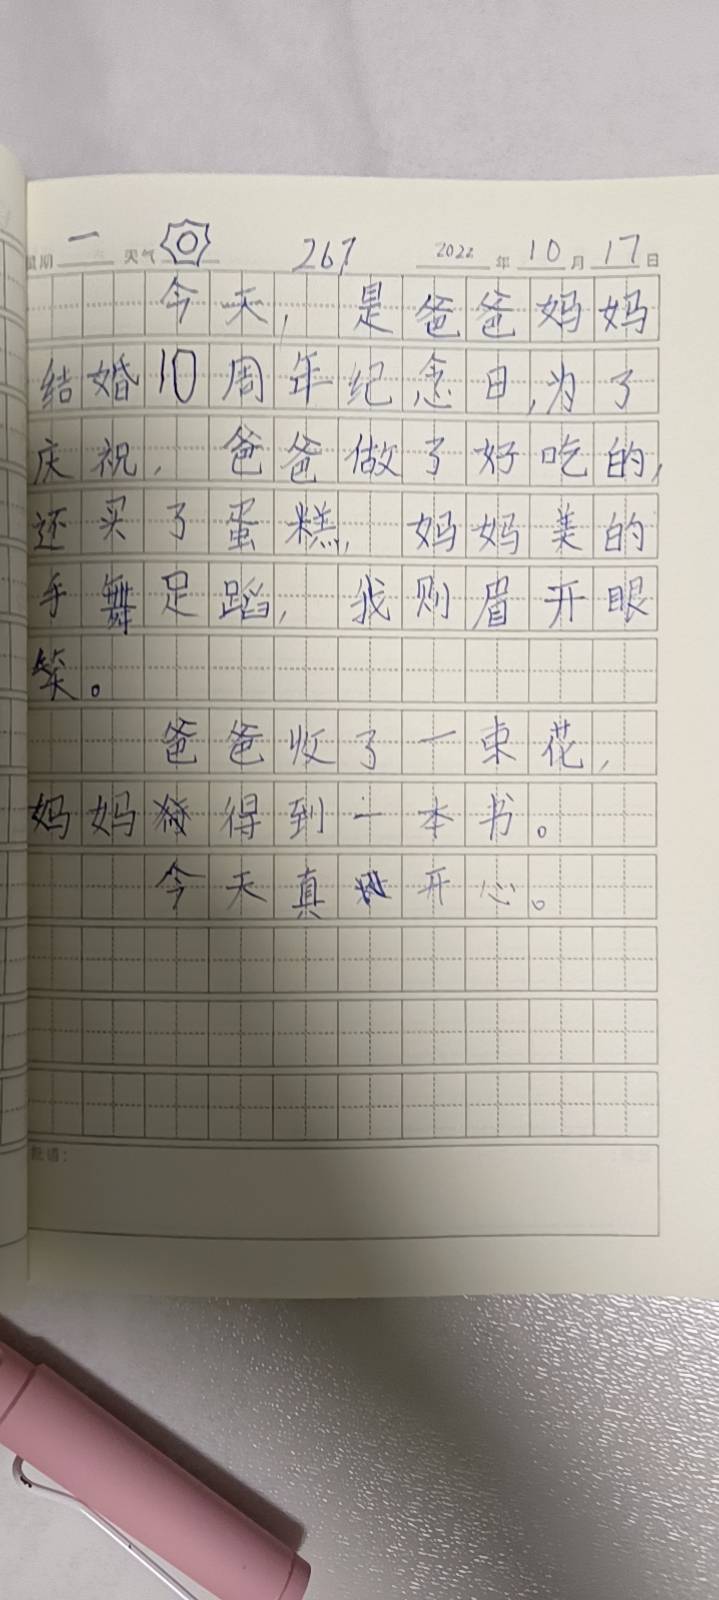 星期一 天气 267 2022年10月17日
今天，是爸爸妈妈
结婚10周年纪念日,为了
庆祝，爸爸做了好吃的,
还买了蛋糕，妈妈美的
手舞足蹈，我则眉开眼
笑。
爸爸收了一束花，
妈妈得到一本书。
今天真开心。